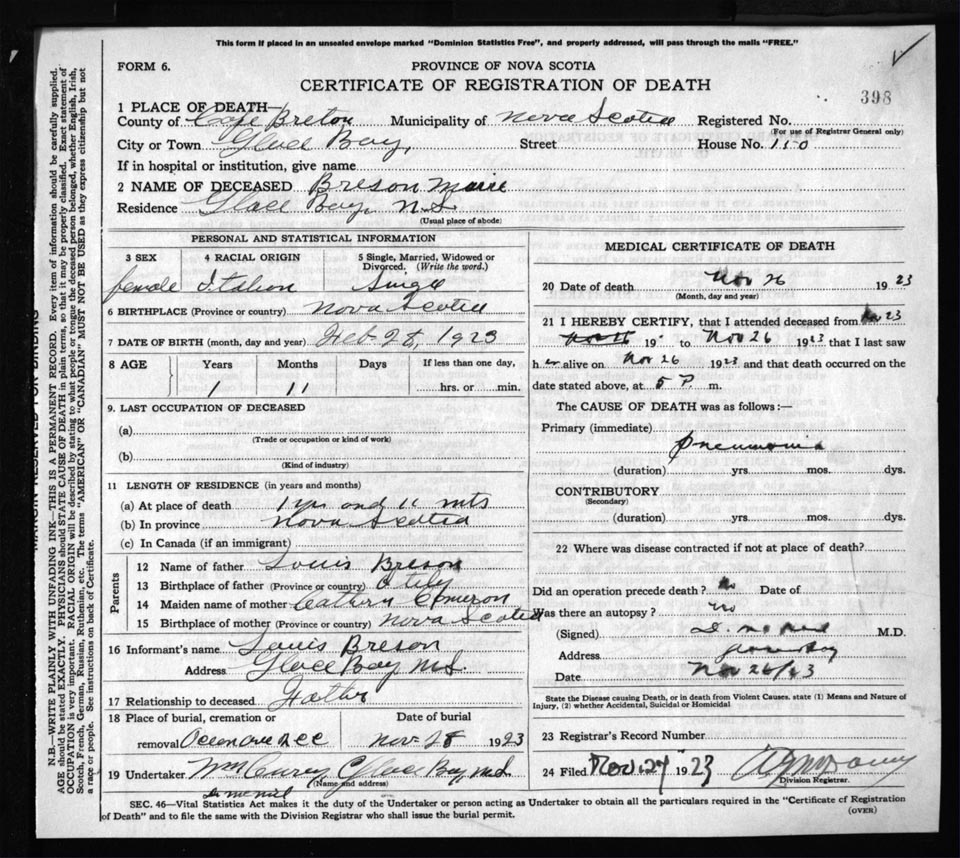 This form if placed in an unsealed envelope marked "Dominion Statistics Free", and properly addressed, will pass through the mails "FREE."
FORM 6.
PROVINCE OF NOVA SCOTIA
CERTIFICATE OF REGISTRATION OF DEATH
398
1 PLACE OF DEATH—
County of Cape Breton Municipality of Nova Scotia Registered No.
(For use of Registrar General only)
City or Town Glace Bay, Street House No. 150
If in hospital or institution, give name
2 NAME OF DECEASED Breson Marie
Residence Glace Bay, N.S.
(Usual place of abode)
PERSONAL AND STATISTICAL INFORMATION
3 SEX 4 RACIAL ORIGIN 5 Single, Married, Widowed or Divorced. (Write the word.)
female Italion Singl
6 BIRTHPLACE (Province or country) Nova Scotia
7 DATE OF BIRTH (month, day and year) Feb 28, 1923
8 AGE Years Months Days If less than one day,
1 11 hrs. or min.
9. LAST OCCUPATION OF DECEASED
(a)
(Trade or occupation or kind of work)
(b)
(Kind of industry)
11 LENGTH OF RESIDENCE (in years and months)
(a) At place of death 1 yr and 11 mts
(b) In province Nova Scotia
(c) In Canada (if an immigrant)
Parents
12 Name of father Louis Breson
13 Birthplace of father (Province or country)
14 Maiden name of mother Cathern Cameron
15 Birthplace of mother (Province or country) Nova Scotia
16 Informant's name Louis Breson
Address Glace Bay N.S.
17 Relationship to deceased Father
18 Place of burial, cremation or Date of burial
removal Nov 28 1923
19 Undertaker Wm Curry Glace Bay N.S.
(Name and address)
MEDICAL CERTIFICATE OF DEATH
20 Date of death Nov 26 1923
(Month, day and year)
21 I HEREBY CERTIFY, that I attended deceased from 23
19 to Nov 26 1923 that I last saw
her alive on Nov 26 1923 and that death occurred on the
date stated above, at 5 P. m.
The CAUSE OF DEATH was as follows:—
Primary (immediate)
Pneumonia
(duration) yrs. mos. dys.
CONTRIBUTORY
(Secondary)
(duration) yrs. mos. dys.
22 Where was disease contracted if not at place of death?
Did an operation precede death? No Date of
Was there an autopsy? no
(Signed) M.D.
Address Glace Bay
Date Nov 26/23
State the Disease causing Death, or in death from Violent Causes, state (1) Means and Nature of
Injury, (2) whether Accidental, Suicidal or Homicidal
23 Registrar's Record Number
24 Filed Nov. 27 1923
Division Registrar.
SEC. 46—Vital Statistics Act makes it the duty of the Undertaker or person acting as Undertaker to obtain all the particulars required in the "Certificate of Registration
of Death" and to file the same with the Division Registrar who shall issue the burial permit.
(OVER)
MARGIN RESERVED FOR BINDING
N.B.—WRITE PLAINLY WITH UNFADING INK—THIS IS A PERMANENT RECORD. Every item of information should be carefully supplied.
AGE should be stated EXACTLY. PHYSICIANS should STATE CAUSE OF DEATH in plain terms, so that it may be properly classified. Exact statement of
OCCUPATION is very important. RACIAL ORIGIN will be described by stating to what people or tongue the deceased person belonged, whether English, Irish,
Scotch, French, German, Russian, Ruthenian, etc. The terms "AMERICAN" OR "CANADIAN" MUST NOT BE USED as they express citizenship but not
a race or people. See instructions on back of Certificate.